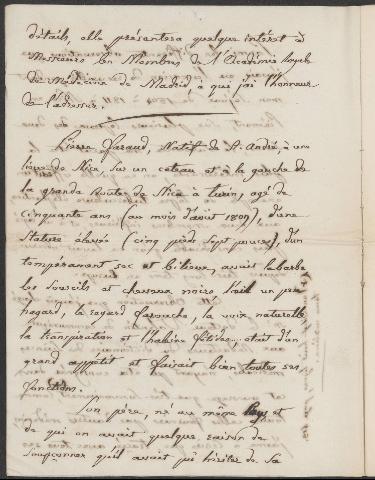 détails, elle présentera quelque intérêt à
Messieurs les Membres de l'Académie Royale
de Médecine de Madrid, à qui j'ai l'honneur
de l'adresser.
Pierre Faraud, Natif de St. André, à une
lieue de Nice, sur un coteau et à la gauche de
la grande Route de Nice à turin, agé de
cinquante ans (au mois d'août 1809), d'une
Stature élevée (cinq pieds sept pouces), d'un
tempérament sec et bilieux, avait la barbe
les Sourcils et cheveux noirs l'œil un peu
hagard, le regard farouche, la voix naturelle,
la transpiration et l'haleine fétides... était d'un
grand appétit et faisait bien toutes ses
fonctions.
Son père, né au même Pays et
de qui on avait quelque raison de
Soupçonner qu'il avait pu hériter de sa